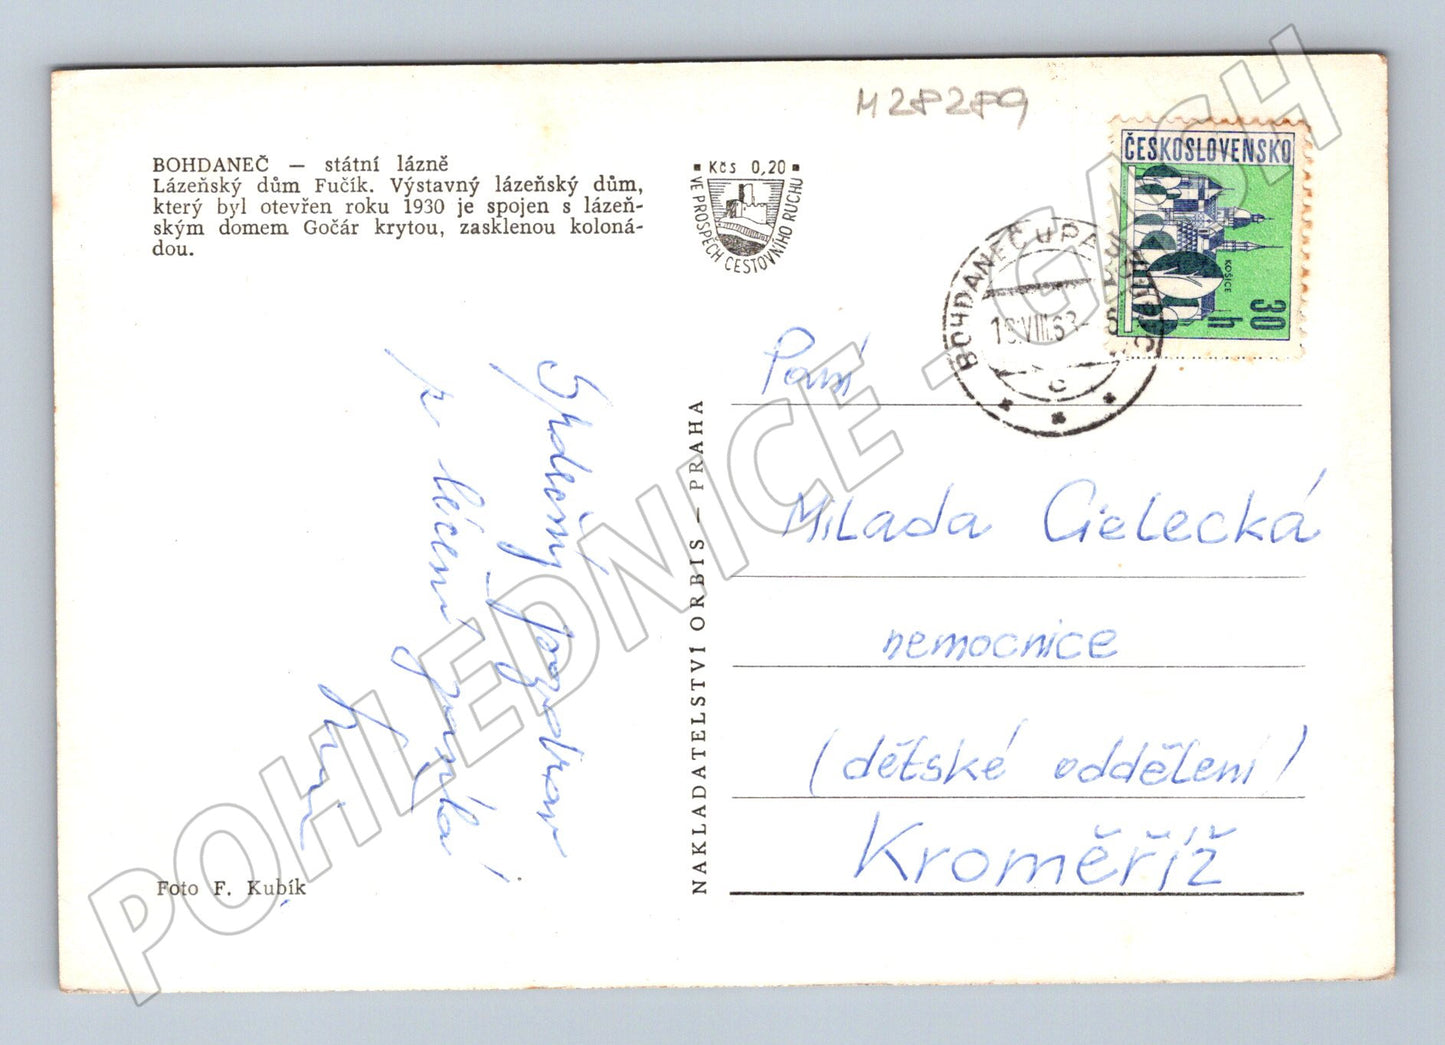 M28289
BOHDANEČ — státní lázně
Lázeňský dům Fučík. Výstavný lázeňský dům,
který byl otevřen roku 1930 je spojen s lázeň-
ským domem Gočár krytou, zasklenou koloná-
dou.
Kčs 0,20
VE PROSPĚCH CESTOVNÍHO RUCHU
ČESKOSLOVENSKO
KOŠICE
30 h
BOHDANEČ U PARDUBIC
VIII.
c
Srdečný pozdrav
z léčení
NAKLADATELSTVÍ ORBIS — PRAHA
Paní
Milada Cielecká
nemocnice
(dětské oddělení)
Kroměříž
Foto F. Kubík
POHLEDNICE - GASH